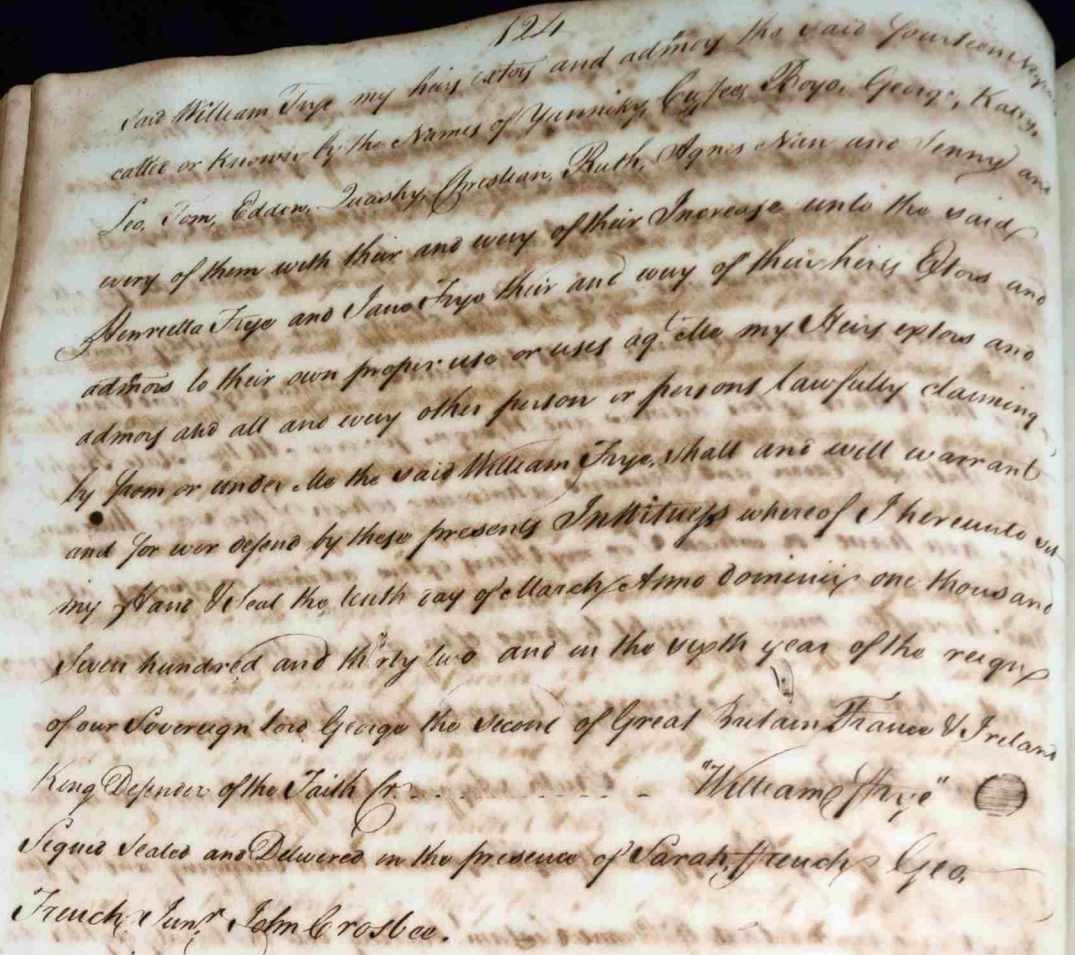 124
said William Frye my heirs extors and admors the said fourteen
called or known by the Names of Yannicky, Boyo, George, Katey,
Leo, Tom, Eddon, Quashy, Christian, Ruth, Agnes Nan and Jenny and
every of them with their and every of their Increase unto the said
Henrietta Frye and Jane Frye their and every of their heirs Extors and
admors to their own proper use or uses agt. Me my Heirs extors and
admors and all and every other person or persons lawfully claiming
by from or under Me the said William Frye, shall and will warrant
and for ever defend by these presents In Witness whereof I hereunto set
my Hand & Seal the tenth day of March Anno Domini one thousand
Seven hundred and thirty two and in the sixth year of the reign
of our Sovereign lord George the second of Great Britain France & Ireland
King Defender of the Faith &c. "William Frye"
Signed Sealed and Delivered in the presence of Sarah ffrench Geo.
French Junr. John Crosbee.